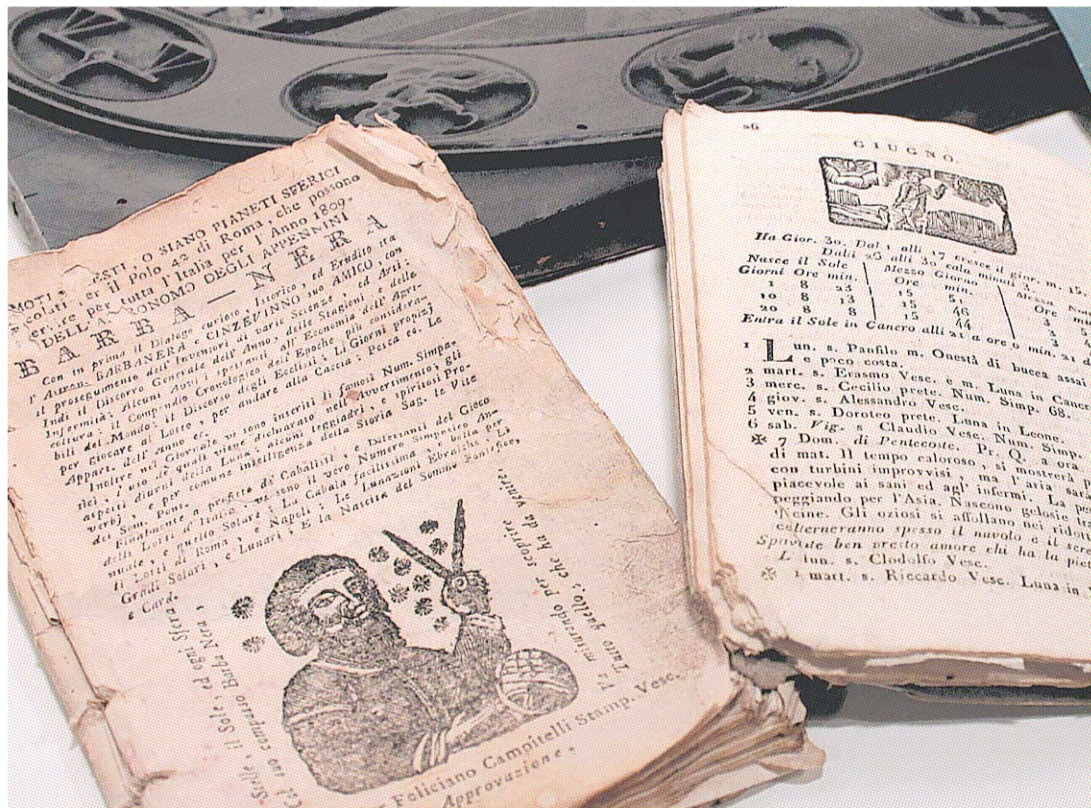 MOTI O SIANO PIANETI SFERICI
il Polo 42 di Roma, che possono
per tutta l'Italia per l'Anno 1809.
DELL'ASTRONOMO DEGLI APPENNINI
BARBA — NERA
Con in prima il Dialogo curioso, Istorico, ed Erudito tra
BARBANERA e CINZEVINO suo AMICO, con
il proseguimento dell'Inventori di varii Scienze, ed Arti:
Indi il Discorso Generale dell'Anno, delle Stagioni, e dell'
Infermità; Alcuni Avvisi spettanti all'Economia dell'Agri-
cultura: il Compendio Cronologico dell'Epoche più considera-
bili del Mondo: il Discorso degli Ecclissi; Li Giorni propizj
per giocare al Lotto, per andare alla Caccia; Pesca ec. Le
Appart. dell'Anno ec.
Inoltre nel Giornale vi sono inseriti li famosi Num. Simpa-
tici, l'uso de' quali vien dichiarato nell'Avvertimento; gli
aspetti diurni della Luna; alcuni leggiadri, e spiritosi Pro-
verbj, e per comune intelligenza della Storia Sag. le Vite
dei Som. Pont.
Finalmente a profitto de' Cabalisti, e Dilettanti del Gioco
delli Lotti d'Italia vi sono il vero Numero Simpatico An-
nuale, e quello Solare; La Cabala facilissima, e bella per
li Lotti di Roma, e Napoli; Le Lunazioni Ebraiche; Li
Gradi Solari, e Lunari, E la Nascita del Sommo Pontefice,
e Card.
Stelle, il Sole, ed ogni Sfera
Col suo compasso Barba Nera
Va misurando per scoprire
Tutto quello, che ha da venire.
Feliciano Campitelli Stamp. Vesc.
Approvazione.
26
GIUGNO.
Ha Gior. 30. Dal 1 alli 17 cresce il gior. m. 15.
Dalli 26 alli 30 cala minuti 3.
Nasce il Sole Mezzo Giorno Mezza
Giorni Ore min. Ore min. Ore
1 8 23 15 51 3
10 8 13 15 46 3
20 8 8 15 44 3
Entra il Sole in Cancro alli 21 a ore 0 min. 21
1 Lun. s. Panfilo m. Onestà di bucca assai
e poco costa.
2 mart. s. Erasmo Vesc. e m. Luna in
3 merc. s. Cecilio prete. Num. Simp. 68.
4 giov. s. Alessandro Vesc.
5 ven. s. Doroteo prete. Luna in Leone.
6 sab. Vig. s Claudio Vesc. Num. Simp.
7 Dom. di Pentecoste. Pr. Q. a ora
di mat. Il tempo caloroso, si mostrerà
con turbini improvvisi, ma l'aria
piacevole ai sani ed agl' infermi. La
peggiando per l'Asia. Nascono gelosie
Neme. Gli oziosi si affollano nei ridotti
spesso il nuvolo e il
ben presto amore chi ha la
lun. s. Clodolfo Vesc.
mart. s. Riccardo Vesc. Luna in